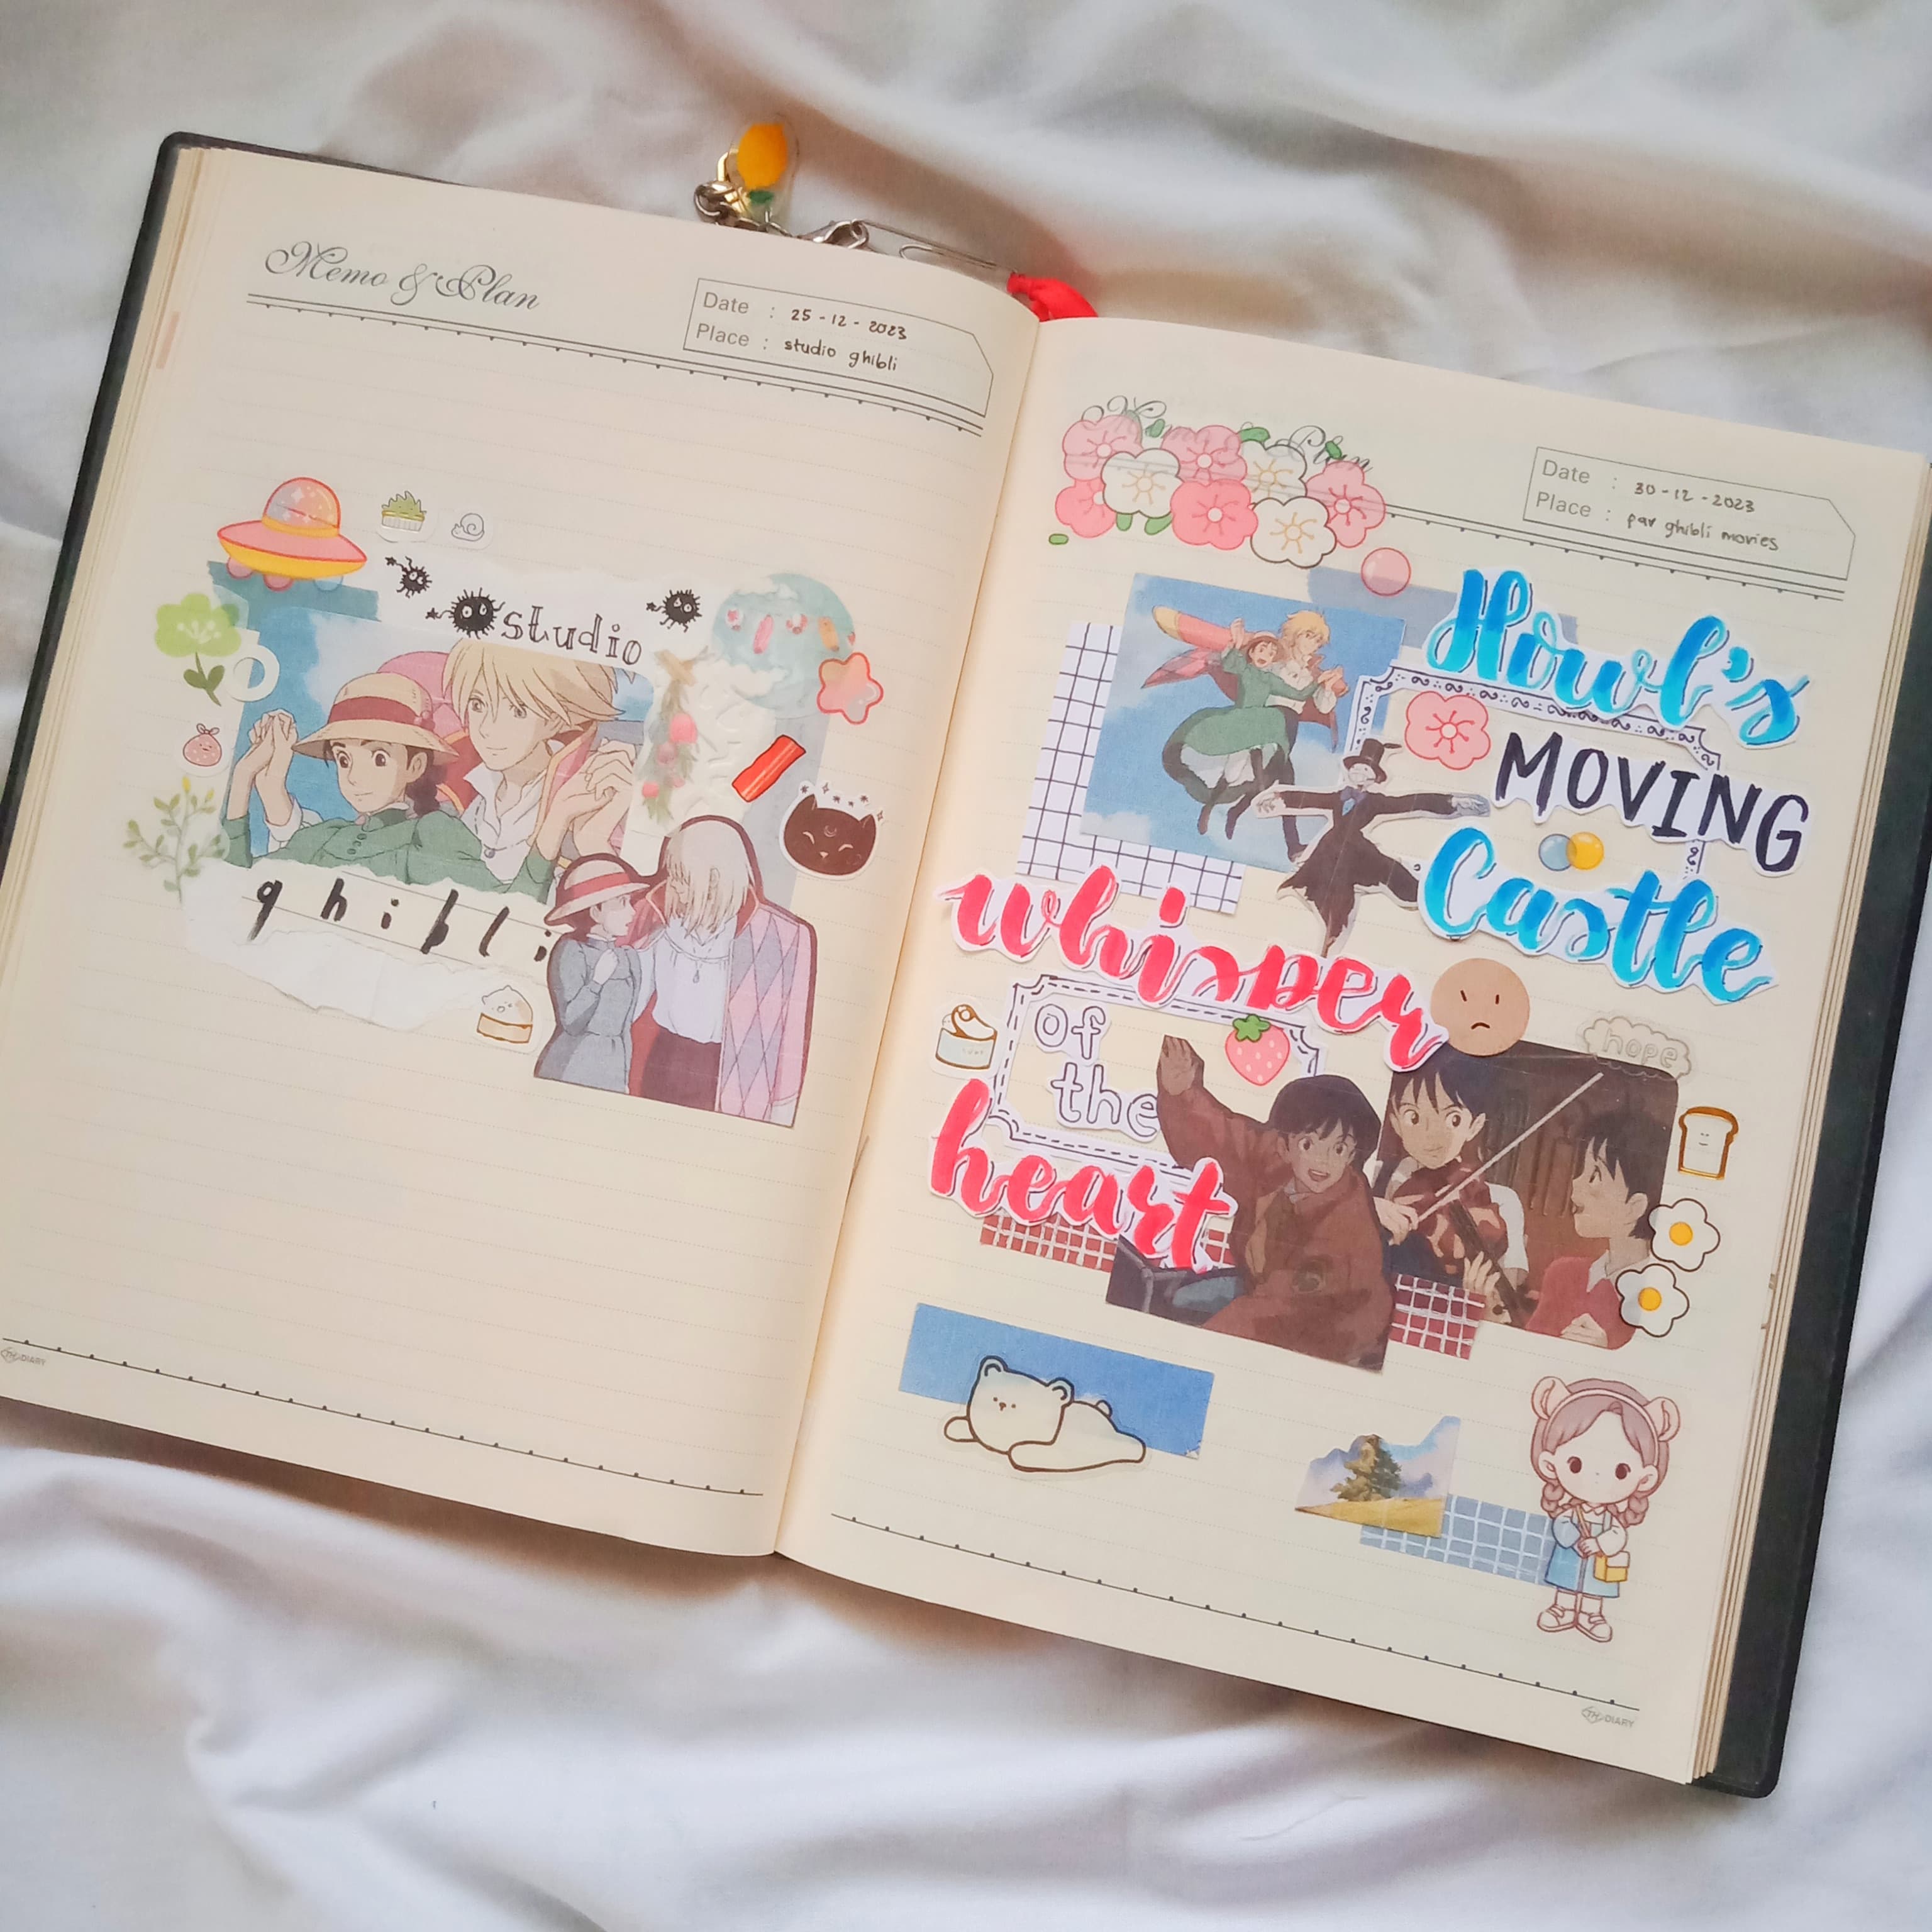 Memo & Plan
Date : 25-12-2023
Place : studio ghibli
studio
ghibli
TH DIARY
Plan
Date : 30-12-2023
Place : par ghibli movies
Howl's
MOVING
Castle
whisper
of
the
heart
hope
TH DIARY